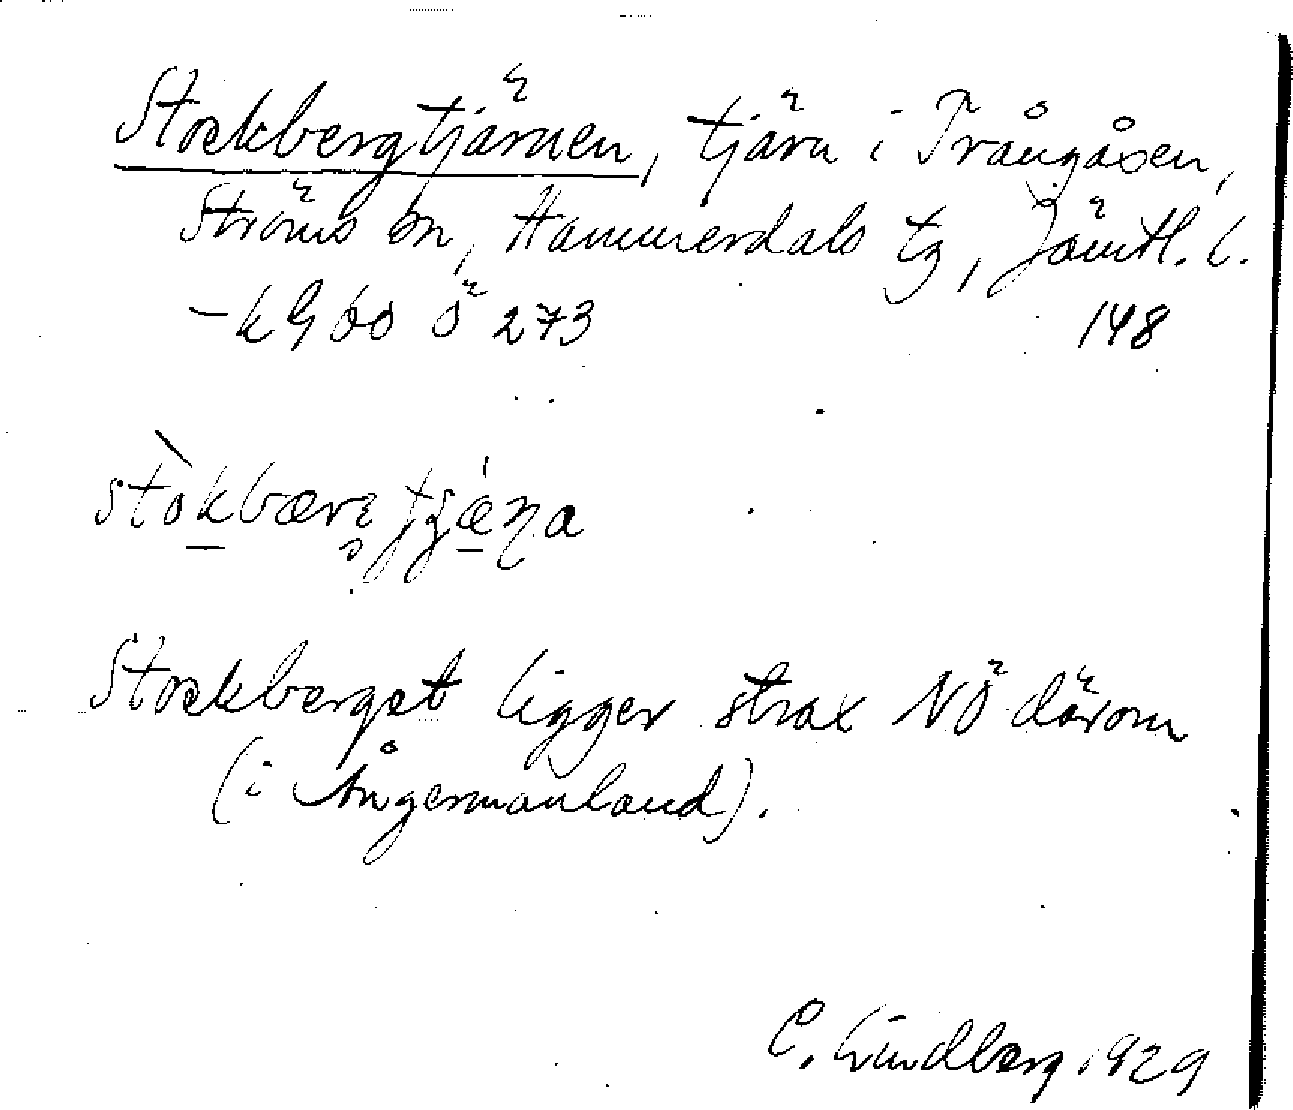 Stockbergtjärnen, tjärn i Trångåsen,
Ströms sn, Hammerdals tg, Jämtl. l.
– k G 60 Ö 273 148
stòkbærɜ tjǽṇa
Stockberget ligger strax NÖ därom
(i Ångermanland).
C. Lindberg 1929